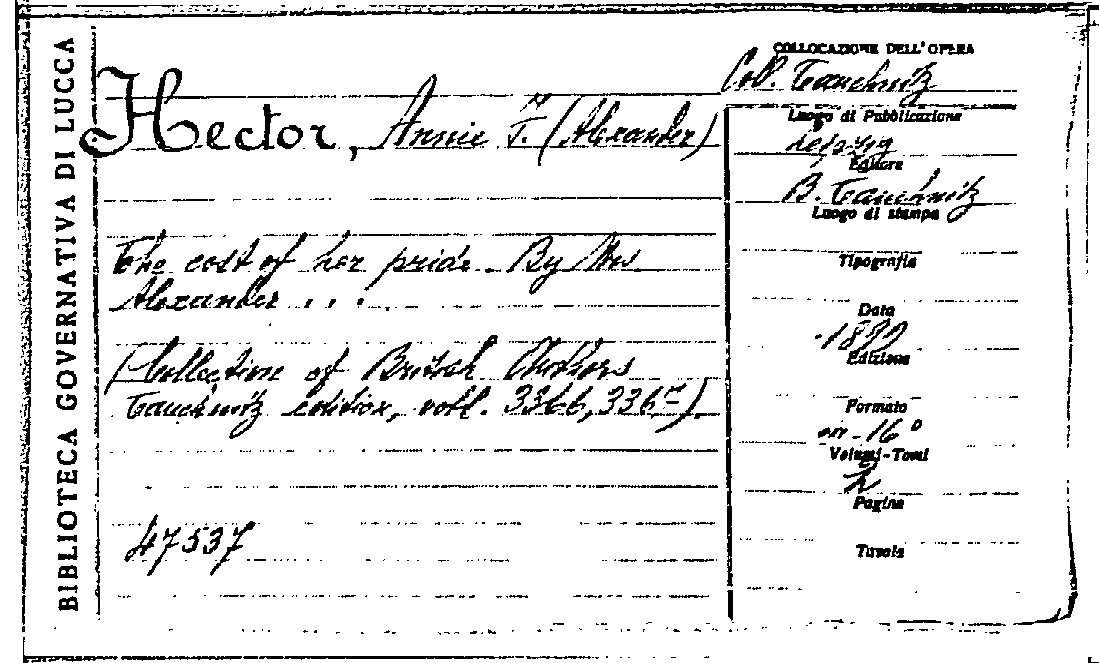 BIBLIOTECA GOVERNATIVA DI LUCCA
Hector, Annie F. (Alexander)
The cost of her pride. By Mrs
Alexander ...
(Collection of British Authors
Tauchnitz edition, voll. 3366, 336
47537
COLLOCAZIONE DELL'OPERA
Coll. Tauchnitz
Luogo di Pubblicazione
Leipzig
Editore
B. Tauchnitz
Luogo di stampa
Tipografia
Data
Edizione
Formato
in-16°
Volumi-Tomi
2
Pagine
Tavole